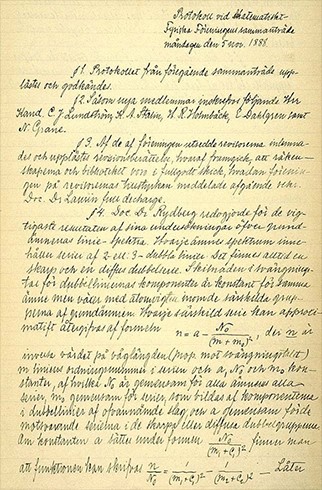 Protokoll vid Matematiskt-
Fysiska Föreningens sammanträde
måndagen den 5 nov. 1888.
§ 1. Protokollet från föregående sammanträde upp-
lästes och godkändes.
§ 2. Såsom nya medlemmar inskrefvos följande Hrr
Kand. C. J. Lundström, K. A. , W. R. Holmbäck, C. Dahlgren samt
N. Grane.
§ 3. Af de af föreningen utsedde revisorerna inlemna-
des och upplästes revisionsberättelse, hvaraf framgick, att räken-
skaperna och biblioteket voro i fullgodt skick, hvadan förenin-
gen på revisorernas tillstyrkan meddelade afgående sekr.
Doc. Di full decharge.
§ 4. Doc. Di Rydberg redogjorde för de vig-
tigaste resultaten af sina undersökningar öfver grund-
ämnenas linie-spektra. Hvarje ämnes spektrum inne-
håller serier af 2- el. 3-dubbla linier. Det finnes alltid en
skarp och en diffus dubbelserie. Skilnaden i svängningstal
för dubbelliniernas komponenter är konstant för samma
ämne men växer med atomvigten inom de särskilda grup-
perna af grundämnen. Hvarje särskild serie kan approxi-
matift återgifvas af formeln n = a - N₀/(m₁+m₀)², der n är
inversa värdet på våglängden (prop. mot svängningstalet)
m liniens ordningsnummer i serien och a, N₀ och m₀ kon-
stanter, af hvilka N₀ är gemensam för alla ämnens alla
serier, m₀ gemensam för serier, som bildas af komponenterna
i dubbellinier af ofvannämnde slag och a gemensam för de
motsvarande serierna i de skarpa eller diffusa dubbelgrupperna.
Om konstanten a sättes under formen N₀/(m₁+c₁)² finner man
att funktionen kan skrifvas n/N₀ = 1/(m₁+c₁)² - 1/(m₂+c₂)². Låter